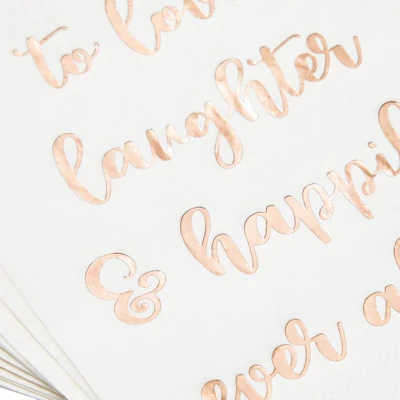 to lo
laughter
& happil
ever a